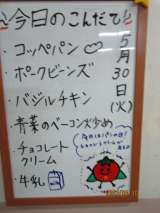 今日のこんだて
5月30日(火)
・コッペパン
・ポークビーンズ
・バジルチキン
・青菜のベーコン炒め
・チョコレートクリーム
・牛乳